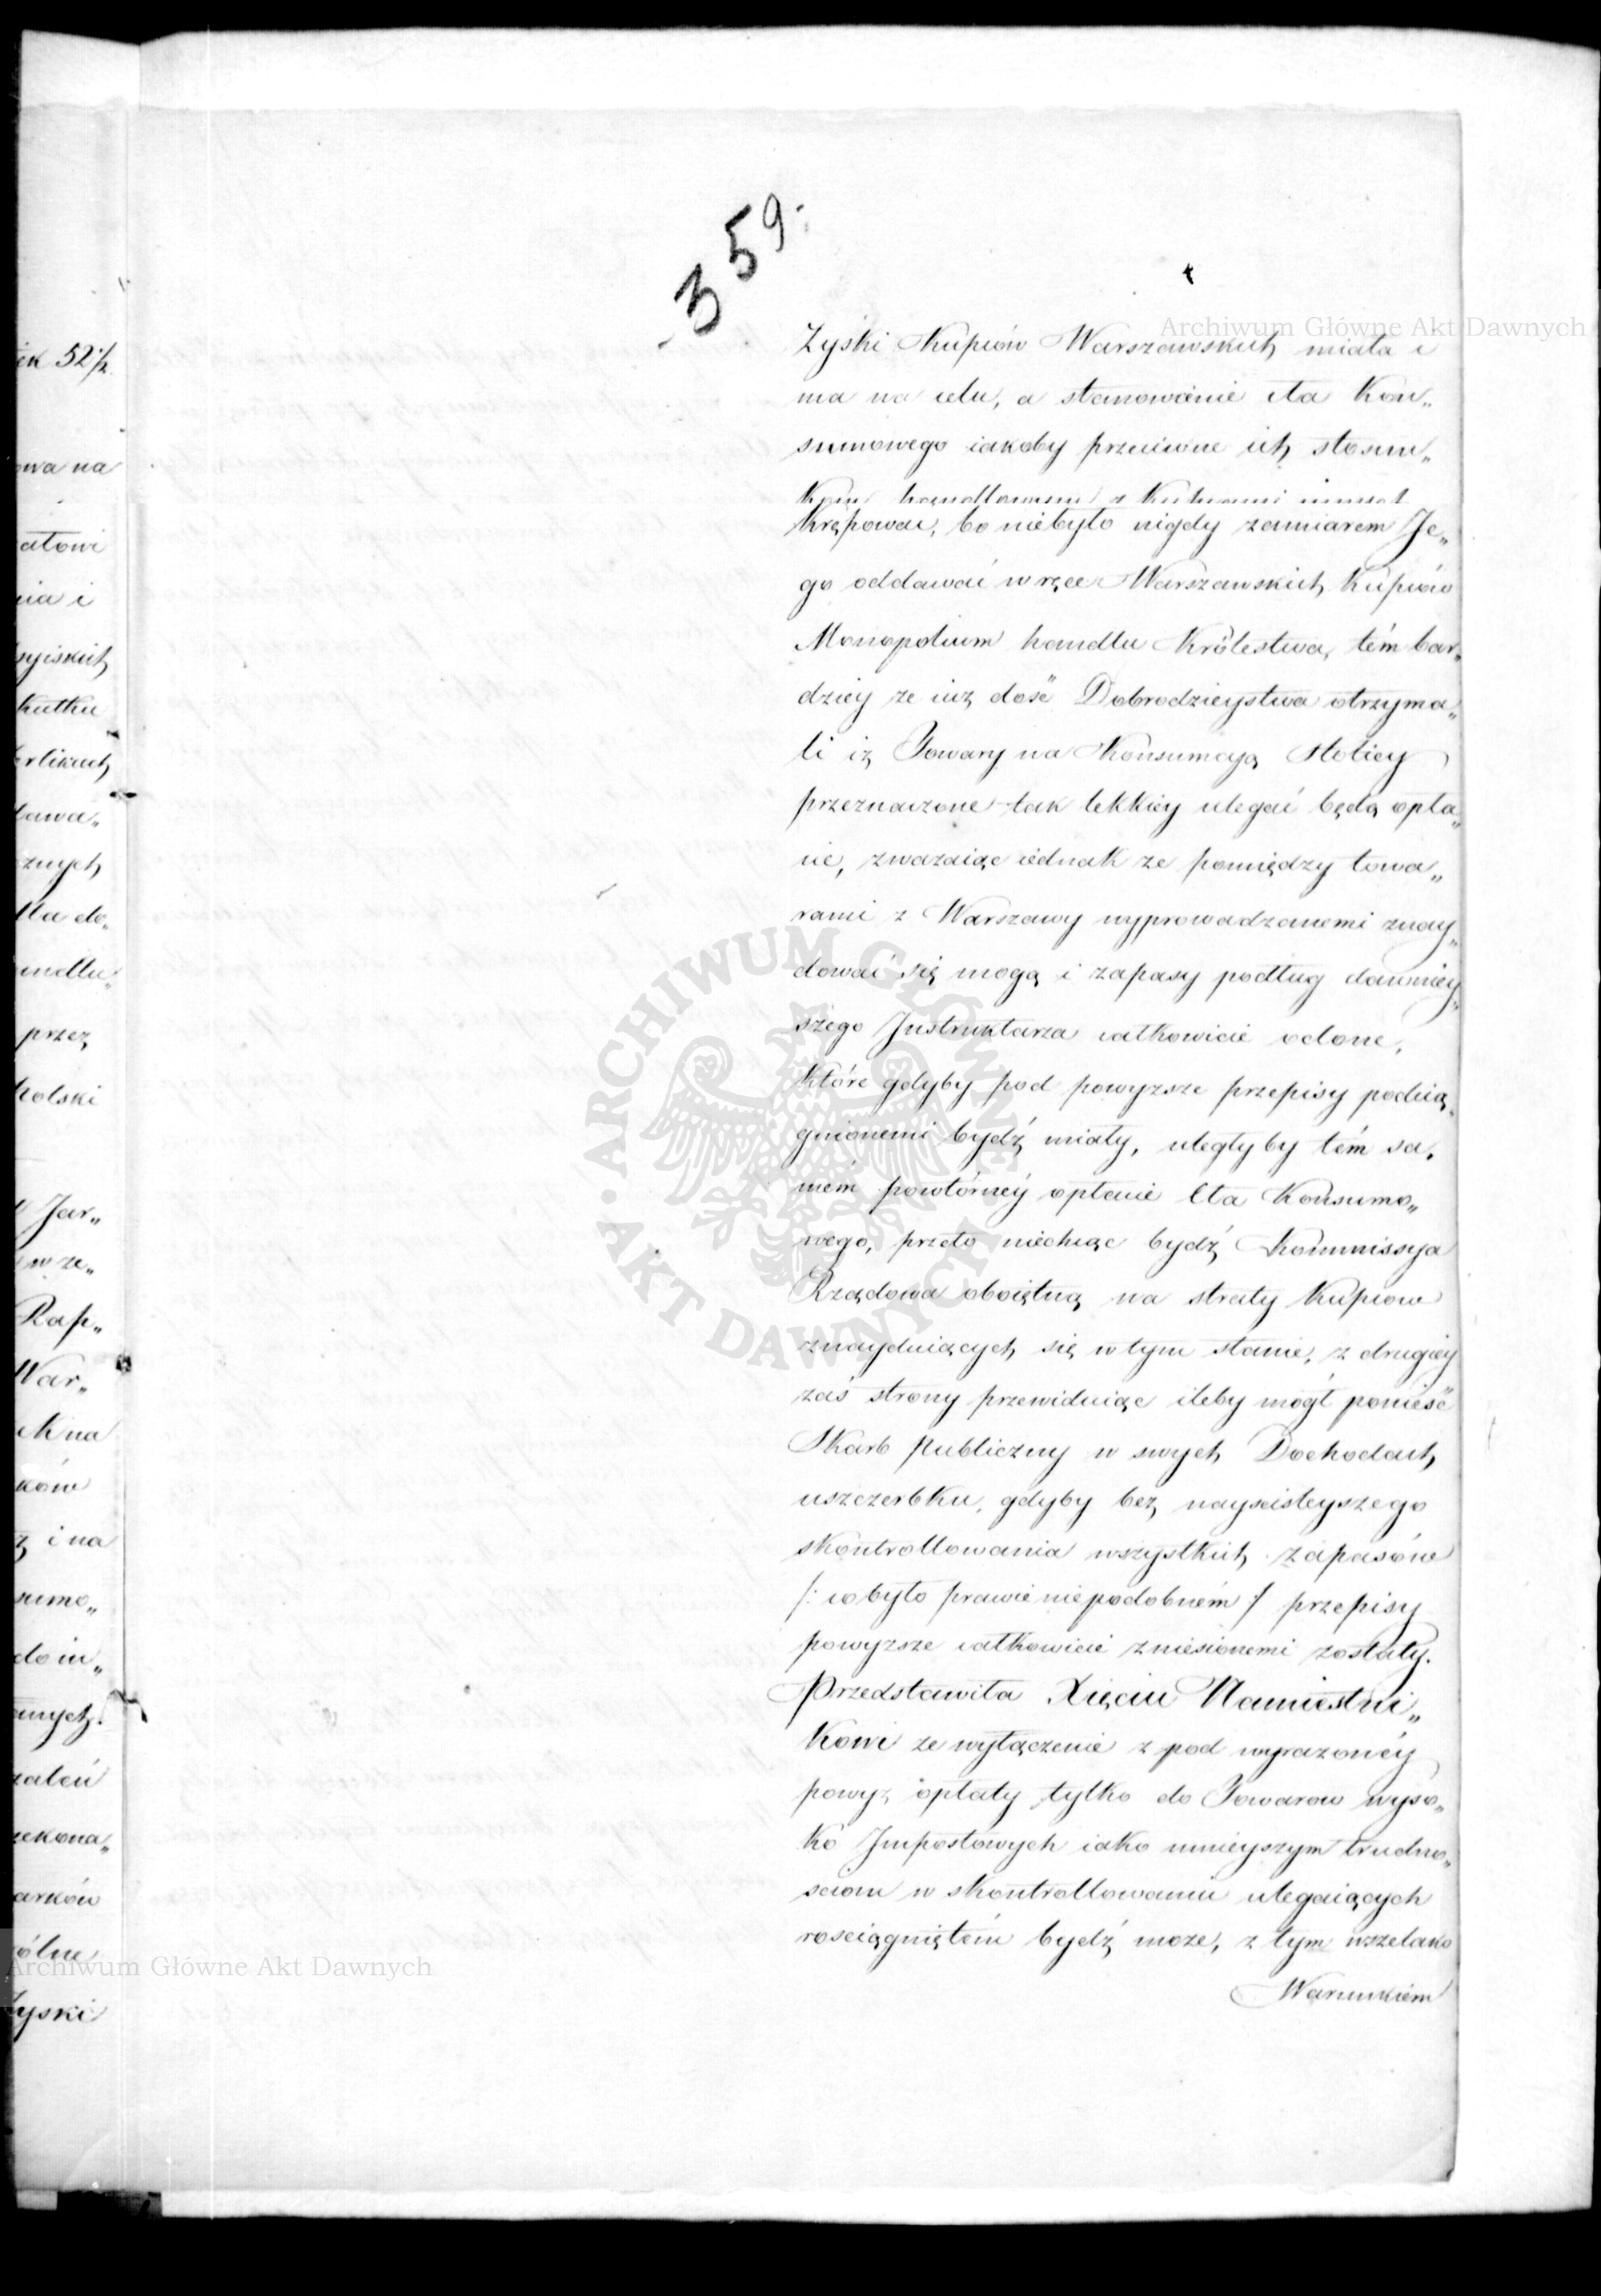 359.
Zyski Kupców Warszawskich miała i
ma na celu, a stanowienie cła Kon„
sumowego iakoby przeciwne ich stosun„
kom handlowym z
krępować, bo niebyło nigdy zamiarem Je„
go oddawać w ręce Warszawskich Kupców
Monopolium handlu Królestwa, tém bar„
dziey ze iuz dość Dobrodzieystwa otrzyma„
li iz Towary na Konsumcyą Stolicy
przeznaczone tak lekkiey ulegać będą opła„
cie, zwazaiąc iednak ze pomiędzy towa„
rami z Warszawy wyprowadzanemi znay„
dować się mogą i zapasy podług dawniey„
szego Instruktarza całkowicie oclone,
które gdyby pod powyzsze przepisy podcią„
gnionemi bydź miały, uległyby tém sa„
mém powtórney opłacie Cła Konsumo„
wego, przeto niechcąc bydź Kommissya
Rządowa oboiętną na straty Kupcow
znayduiących się w tym stanie, z drugiey
zaś strony przewiduiąc ileby mógł ponieść
Skarb Publiczny w swych Dochodach
uszczerbku, gdyby bez nayscisleyszego
skontrollowania wszystkich zapasów
/: co było prawie niepodobném :/ przepisy
powyzsze całkowicie zniesionemi zostały.
Przedstawiła Xięciu Namiestni„
kowi ze wyłączenie z pod wyrazoney
powyz opłaty tylko do Towarow wyso„
ko Impostowych iako mnieyszym trudno„
sciom w skontrollowaniu ulegaiących
rosciągniętém bydź moze, z tym wszelako
Warunkiem
iek 52 1/2
owa na
atowi
nia i
syiskich
kutku
zław„
znych
dla do„
andlu„
przez
Polski
Jar„
w ze„
Rap„
War„
ek na
ków
z i na
sumo„
do in„
amych.
zaleń
zekona„
arków
ólne
Zyski
Archiwum Główne Akt Dawnych
Archiwum Główne Akt Dawnych
ARCHIWUM GŁÓWNE · AKT DAWNYCH ·